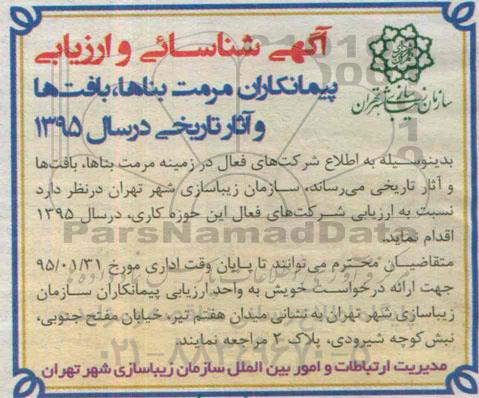 آگهی شناسائی و ارزیابی
پیمانکاران مرمت بناها، بافت‌ها
و آثار تاریخی در سال ۱۳۹۵
سازمان زیباسازی شهر تهران
بدینوسیله به اطلاع شرکت‌های فعال در زمینه مرمت بناها، بافت‌ها
و آثار تاریخی می‌رساند، سازمان زیباسازی شهر تهران درنظر دارد
نسبت به ارزیابی شرکت‌های فعال این حوزه کاری، درسال ۱۳۹۵
اقدام نماید.
ParsNamadData
متقاضیان محترم می‌توانند تا پایان وقت اداری مورخ ۹۵/۰۱/۳۱
جهت ارائه درخواست خویش به واحد ارزیابی پیمانکاران سازمان
زیباسازی شهر تهران به نشانی میدان هفتم تیر، خیابان مفتح جنوبی،
نبش کوچه شیرودی، پلاک ۲ مراجعه نمایند.
۰۲۱-۸۸۳۴۹۶۷۰-۵
مدیریت ارتباطات و امور بین الملل سازمان زیباسازی شهر تهران